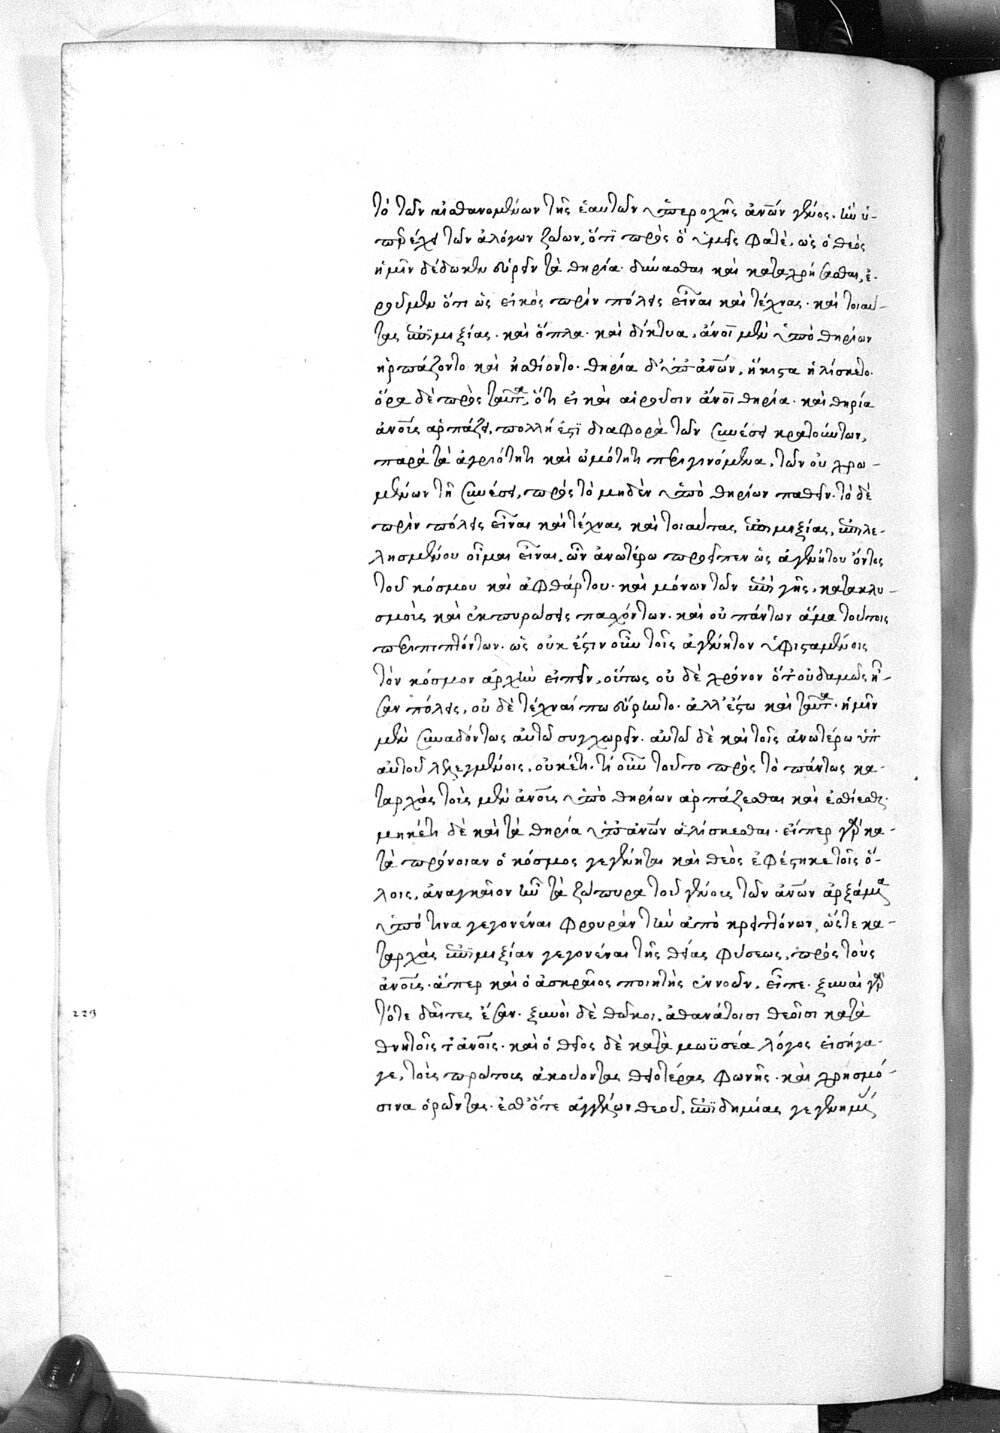 τὸ τῶν αἰσθανομένων τῆς ἑαυτῶν ὑπεροχῆς ἀνων γένος. ἣν ὑ-
περέχει τῶν ἀλόγων ζώων, ὅτι πρὸς ὃ ὑμεῖς φατέ, ὡς ὁ θεὸς
ἡμῖν δέδωκεν αἱρεῖν τὰ θηρία δύνασθαι καὶ καταχρῆσθαι, ἐ-
ροῦμεν ὅτι ὡς εἰκὸς πρὶν πόλεις εἶναι καὶ τέχνας. καὶ τοιαύ-
τας ἐπιμιξίας. καὶ ὅπλα. καὶ δίκτυα, ἄνοι μὲν ὑπὸ θηρίων
ἡρπάζοντο καὶ ἠσθίοντο. θηρία δ' ὑπ' ἀνων, ἥκιστα ἡλίσκετο.
ὅρα δὲ πρὸς ταῦτα, ὅτι εἰ καὶ αἱροῦσιν ἄνοι θηρία. καὶ θηρία
ἀνους ἁρπάζει, πολλή ἐστι διαφορὰ τῶν συνέσει κρατούντων,
παρὰ τὰ ἀγριότητι καὶ ὠμότητι περιγινόμενα, τῶν οὐ χρω-
μένων τῇ συνέσει, πρὸς τὸ μηδὲν ὑπὸ θηρίων παθεῖν. τὸ δὲ
πρὶν πόλεις εἶναι καὶ τέχνας καὶ τοιαύτας ἐπιμιξίας, ἐπιλε-
λησμένου οἶμαι εἶναι, ὧν ἀνωτέρω προεῖπεν ὡς ἀγενήτου ὄντος
τοῦ κόσμου καὶ ἀφθάρτου. καὶ μόνων τῶν ἐπὶ γῆς, κατακλυ-
σμοὺς καὶ ἐκπυρώσεις πασχόντων. καὶ οὐ πάντων ἅμα τούτοις
περιπιπτόντων. ὡς οὐκ ἔστιν οὖν τοῖς ἀγένητον ὑφισταμένοις
τὸν κόσμον ἀρχὴν εἰπεῖν, οὕτως οὐ δὲ χρόνον ὅτ' οὐδαμῶς ἦ-
σαν πόλεις, οὐ δὲ τέχναί πω εὕρηντο. ἀλλ' ἔστω καὶ ταῦτα. ἡμῖν
μὲν συναδόντως αὐτῷ συγχωρεῖν. αὐτῷ δὲ καὶ τοῖς ἀνωτέρω ὑπ'
αὐτοῦ λελεγμένοις, οὐκέτι. τί οὖν τοῦτο πρὸς τὸ πάντως κα-
ταρχὰς τοὺς μὲν ἀνους ὑπὸ θηρίων ἁρπάζεσθαι καὶ ἐσθίεσθαι.
μηκέτι δὲ καὶ τὰ θηρία ὑπ' ἀνων ἁλίσκεσθαι. εἴπερ γὰρ κα-
τὰ πρόνοιαν ὁ κόσμος γεγένηται καὶ θεὸς ἐφέστηκε τοῖς ὅ-
λοις, ἀναγκαῖον ἦν τὰ ζώπυρα τοῦ γένους τῶν ἀνων ἀρξάμενα
ὑπό τινα γεγονέναι φρουρὰν τὴν ἀπὸ κρειττόνων, ὥστε κα-
ταρχὰς ἐπιμιξίαν γεγονέναι τῆς θείας φύσεως, πρὸς τοὺς
ἀνους. ἅπερ καὶ ὁ ἀσκραῖος ποιητὴς ἐννοῶν, εἶπε. ξυναὶ γὰρ
τότε δαῖτες ἔσαν. ξυνοὶ δὲ θῶκοι, ἀθανάτοισι θεοῖσι κατὰ
θνητοῖς τ' ἀνοις. καὶ ὁ θεῖος δὲ κατὰ μωϋσέα λόγος εἰσήγα-
γε, τοὺς πρώτους ἀκούοντας θειοτέρας φωνῆς. καὶ χρησμό-
σινα ὁρῶντας. ἐσθ' ὅτε ἀγγέλων θεοῦ, ἐπιδημίας γεγενημένας
229